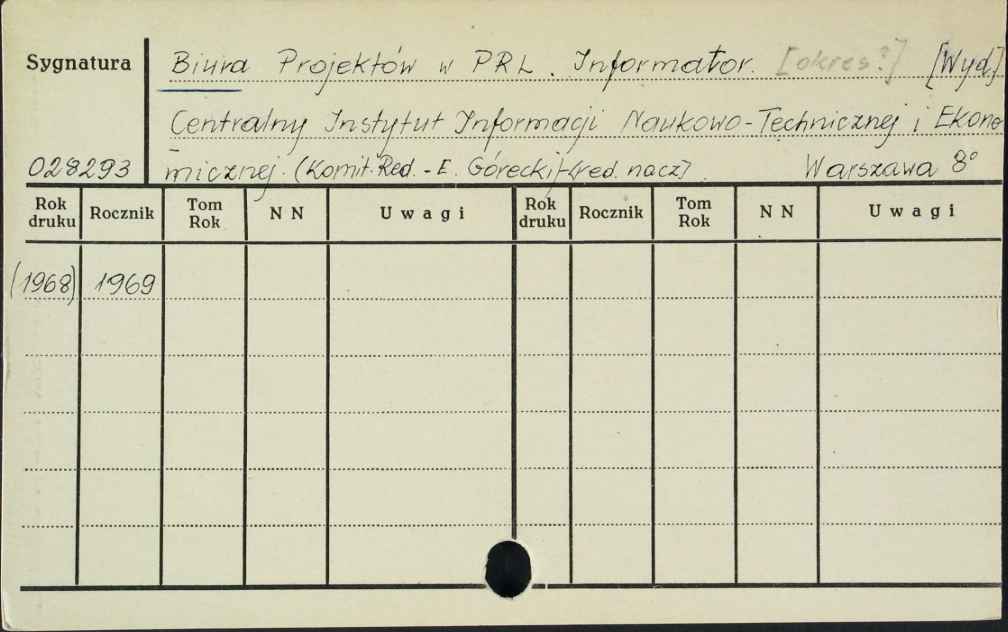 Sygnatura
Biura Projektów w PRL. Informator. [okres?] [Wyd.]
Centralny Instytut Informacji Naukowo-Technicznej i Ekono-
micznej. (Komit. Red. - E. Górecki) - (red. nacz). Warszawa 8°
028293
Rok druku Rocznik Tom Rok N N Uwagi Rok druku Rocznik Tom Rok N N Uwagi
(1968) 1969